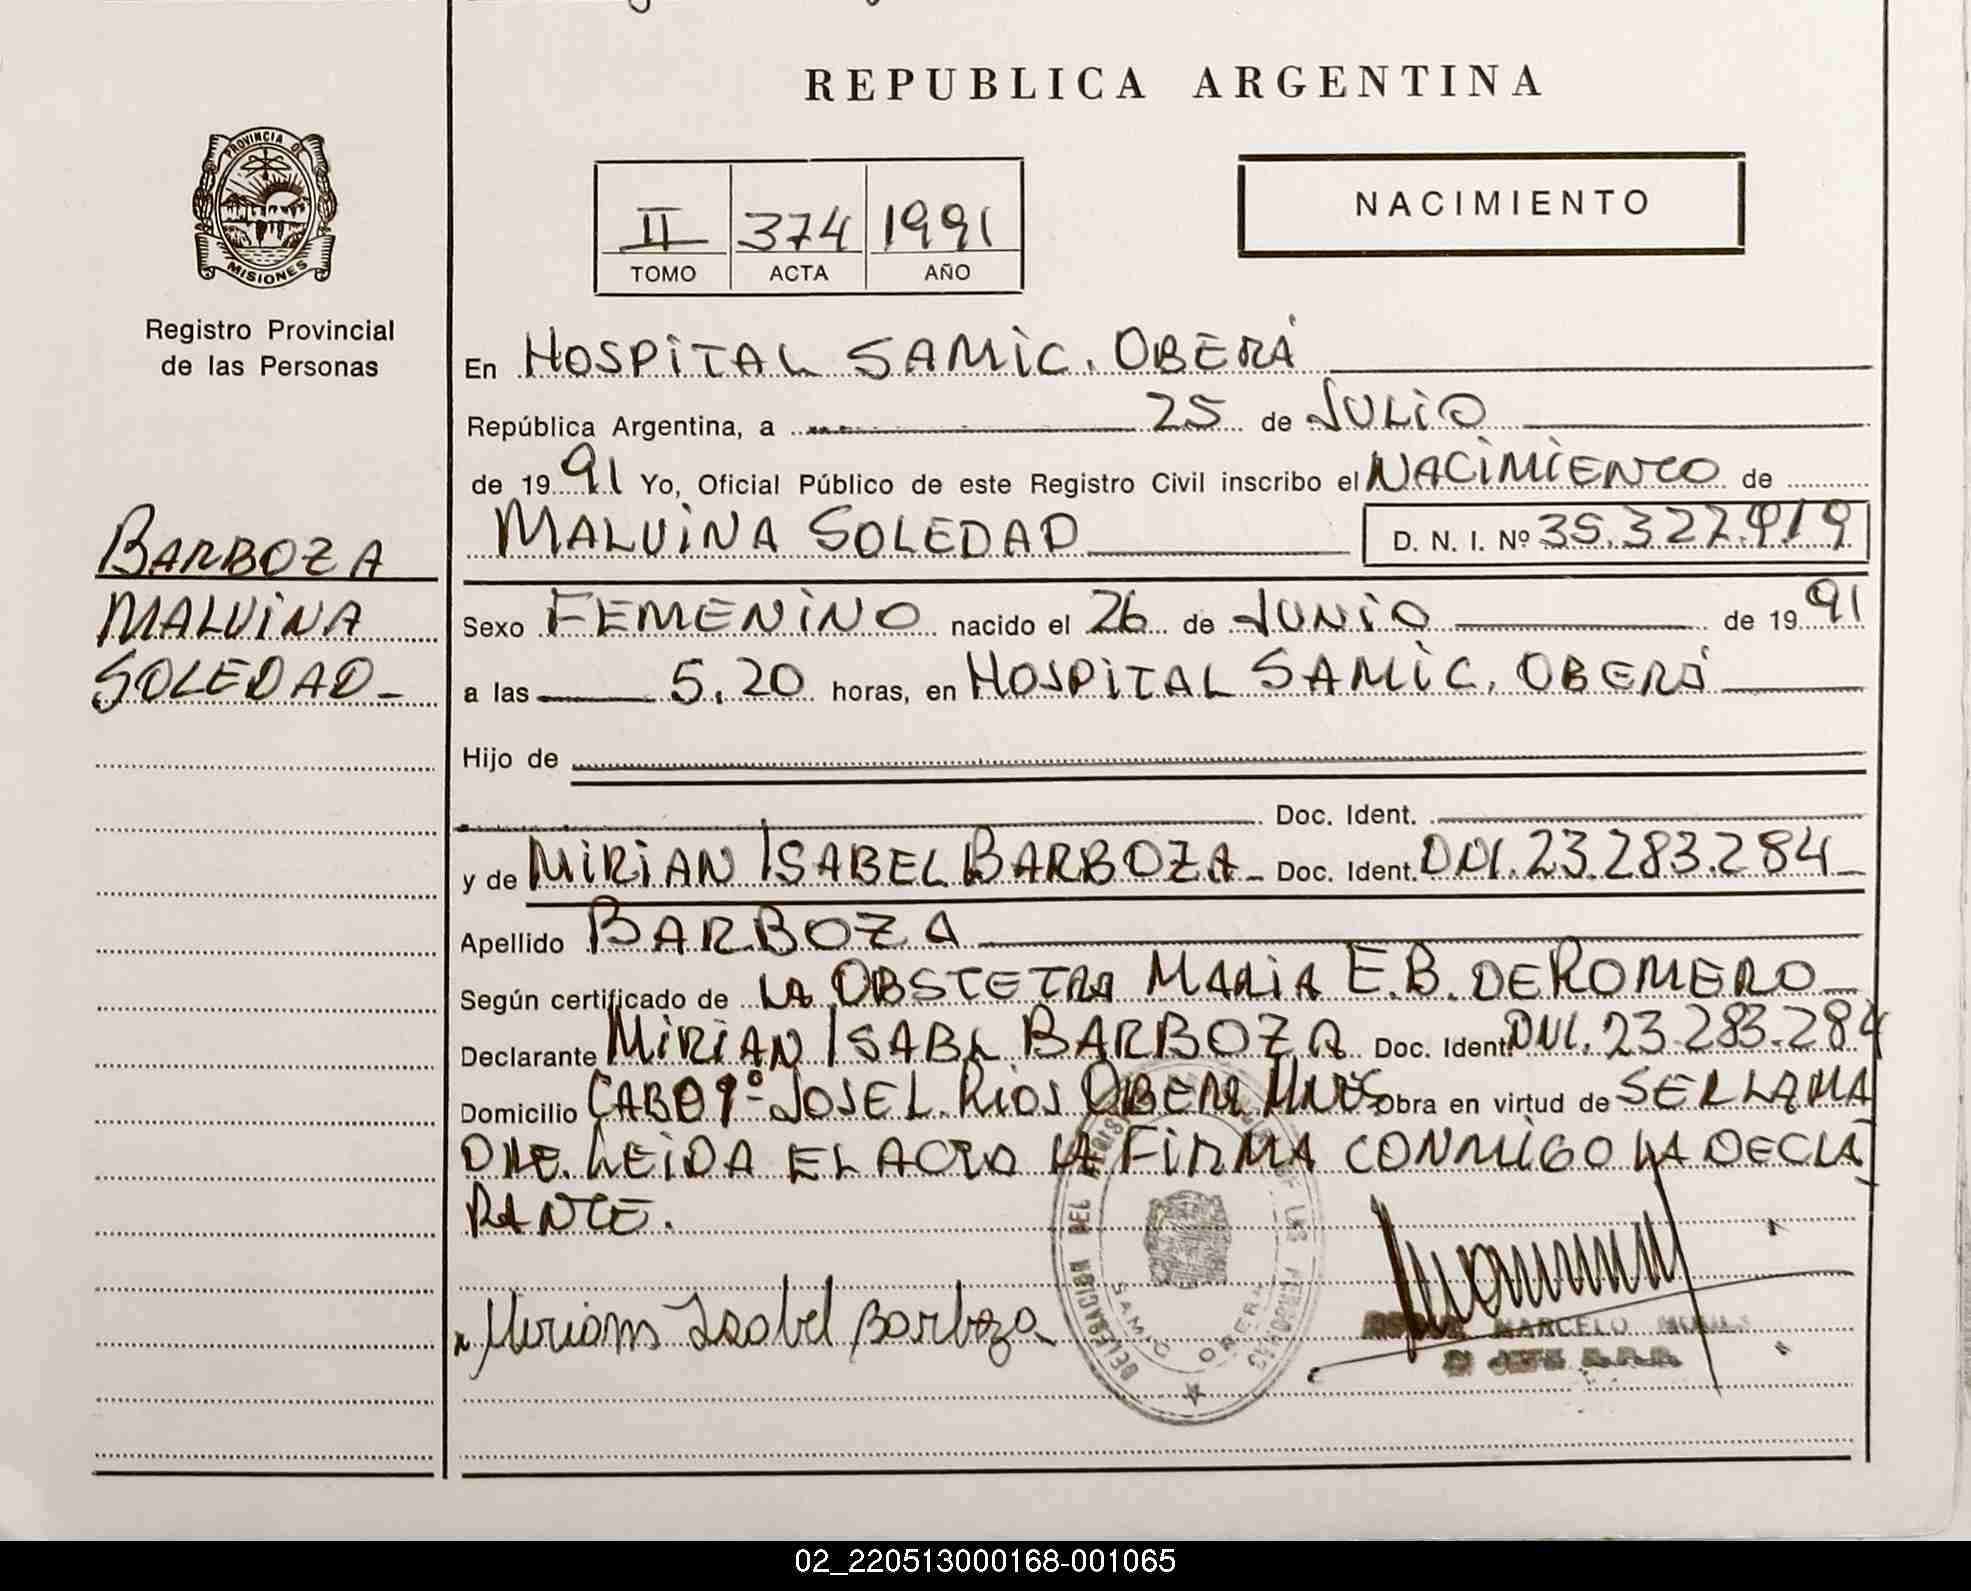 REPUBLICA ARGENTINA
PROVINCIA DE
MISIONES
Registro Provincial
de las Personas
II 374 1991
TOMO ACTA AÑO
NACIMIENTO
BARBOZA
MALVINA
SOLEDAD-
En HOSPITAL SAMIC. OBERÁ
República Argentina, a 25 de JULIO
de 1991 Yo, Oficial Público de este Registro Civil inscribo el NACIMIENTO de
MALVINA SOLEDAD D. N. I. Nº 35.327.919
Sexo FEMENINO nacido el 26 de JUNIO de 1991
a las 5.20 horas, en HOSPITAL SAMIC. OBERÁ
Hijo de
Doc. Ident.
y de MIRIAN ISABEL BARBOZA- Doc. Ident. DNI. 23.283.284-
Apellido BARBOZA
Según certificado de LA OBSTETRA MARIA E.B. DE ROMERO
Declarante MIRIAN ISABL BARBOZA Doc. Ident. DNI. 23.283.284
Domicilio CABO 1º JOSE L. RIOS OBERA MNES Obra en virtud de SER LA MA
DRE. LEIDA EL ACTA LA FIRMA CONMIGO LA DECLA
RANTE.
Miriam Isabel Barboza
DELEGACION DEL REGISTRO DE LAS PERSONAS
SAMIC OBERA
MARCELO
02_220513000168-001065